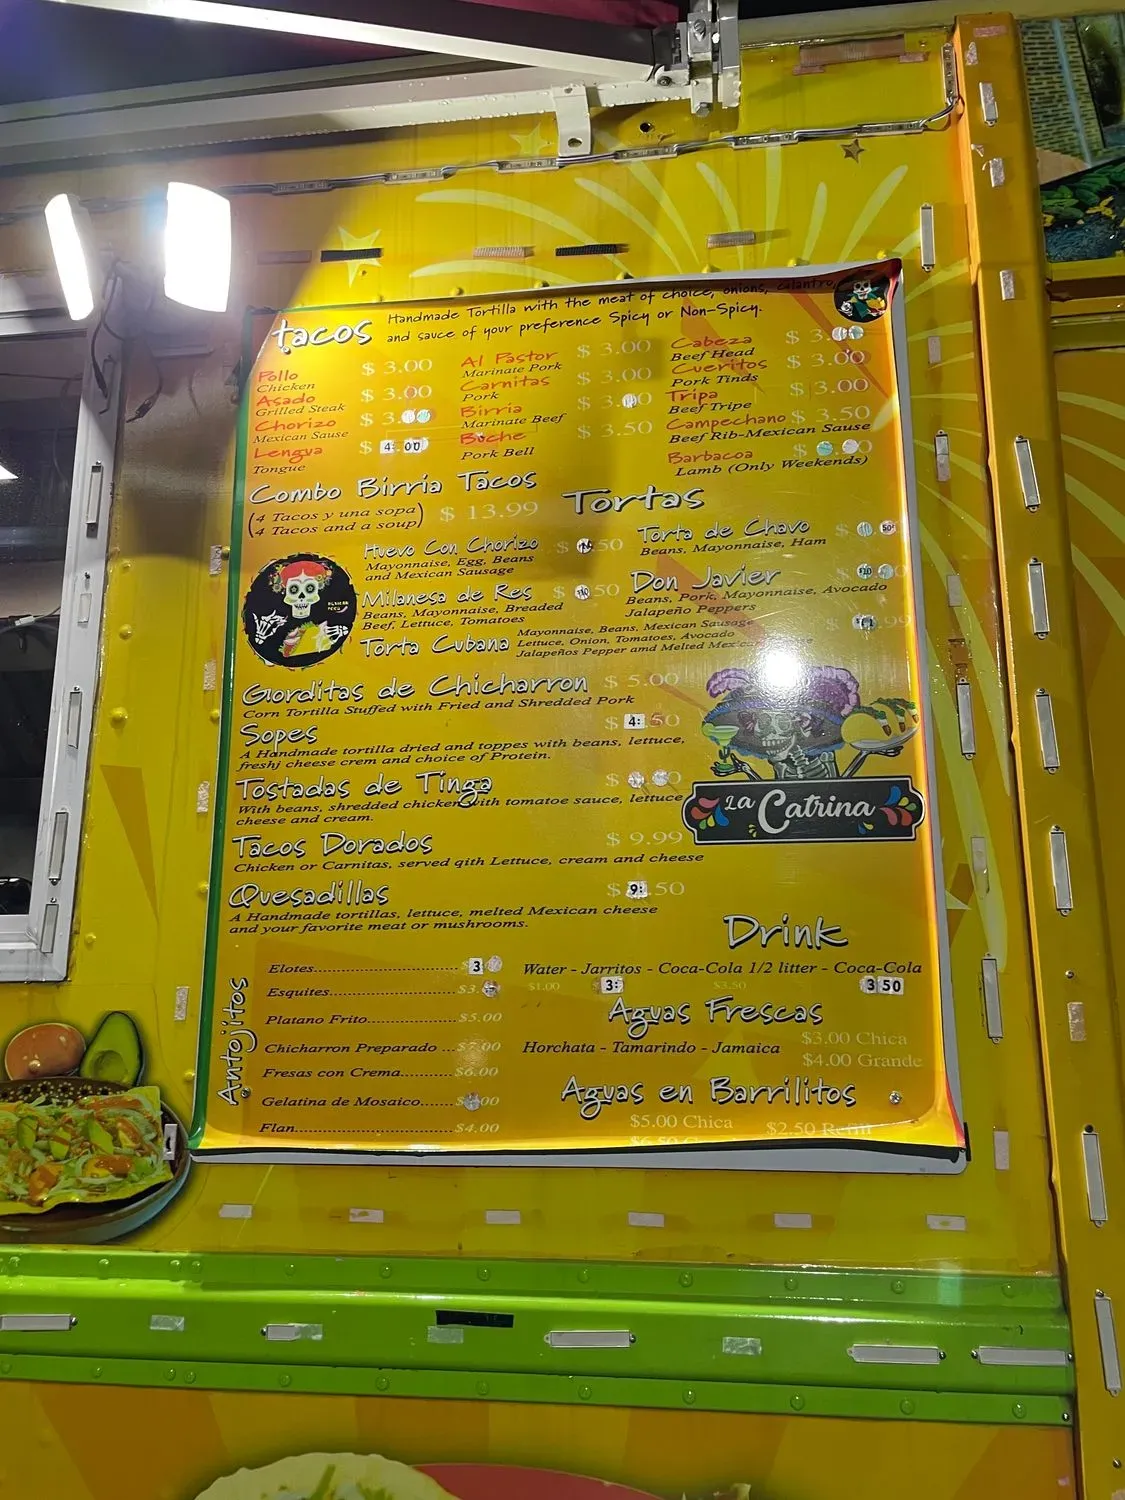 tacos
Handmade Tortilla with the meat of choice, onions, calantro,
and sauce of your preference Spicy or Non-Spicy.
Pollo $ 3.00
Chicken
Asado $ 3.00
Grilled Steak
Chorizo $ 3.
Mexican Sause
Lengua $ 4: 00
Tongue
Al Pastor $ 3.00
Marinate Pork
Carnitas $ 3.00
Pork
Birria $ 3.00
Marinate Beef
Buche $ 3.50
Pork Bell
Cabeza $ 3.
Beef Head
Cueritos $ 3.00
Pork Tinds
Tripa $ 3.00
Beef Tripe
Campechano $ 3.50
Beef Rib-Mexican Sause
Barbacoa $
Lamb (Only Weekends)
Combo Birria Tacos
(4 Tacos y una sopa) $ 13.99
(4 Tacos and a soup)
Tortas
Huevo Con Chorizo $ .50
Mayonnaise, Egg, Beans
and Mexican Sausage
Milanesa de Res $ .50
Beans, Mayonnaise, Breaded
Beef, Lettuce, Tomatoes
Torta de Chavo $
Beans, Mayonnaise, Ham
Don Javier $
Beans, Pork, Mayonnaise, Avocado
Jalapeño Peppers
Torta Cubana $ .99
Mayonnaise, Beans, Mexican Sausage
Lettuce, Onion, Tomatoes, Avocado
Jalapeños Pepper amd Melted
Gorditas de Chicharron $ 5.00
Corn Tortilla Stuffed with Fried and Shredded Pork
Sopes $ 4: 50
A Handmade tortilla dried and toppes with beans, lettuce,
freshj cheese crem and choice of Protein.
Tostadas de Tinga $
With beans, shredded chicken with tomatoe sauce, lettuce
cheese and cream.
Tacos Dorados $ 9.99
Chicken or Carnitas, served qith Lettuce, cream and cheese
Quesadillas $ 9: .50
A Handmade tortillas, lettuce, melted Mexican cheese
and your favorite meat or mushrooms.
La Catrina
Antojitos
Elotes............................ 3
Esquites......................... $3.
Platano Frito.................. $5.00
Chicharron Preparado ... $7.00
Fresas con Crema.......... $6.00
Gelatina de Mosaico....... $
Flan................................ $4.00
Drink
Water - Jarritos - Coca-Cola 1/2 litter - Coca-Cola
$1.00 $ 3: $3.50 3 50
Aguas Frescas
Horchata - Tamarindo - Jamaica
$3.00 Chica
$4.00 Grande
Aguas en Barrilitos
$5.00 Chica $2.50 Refill